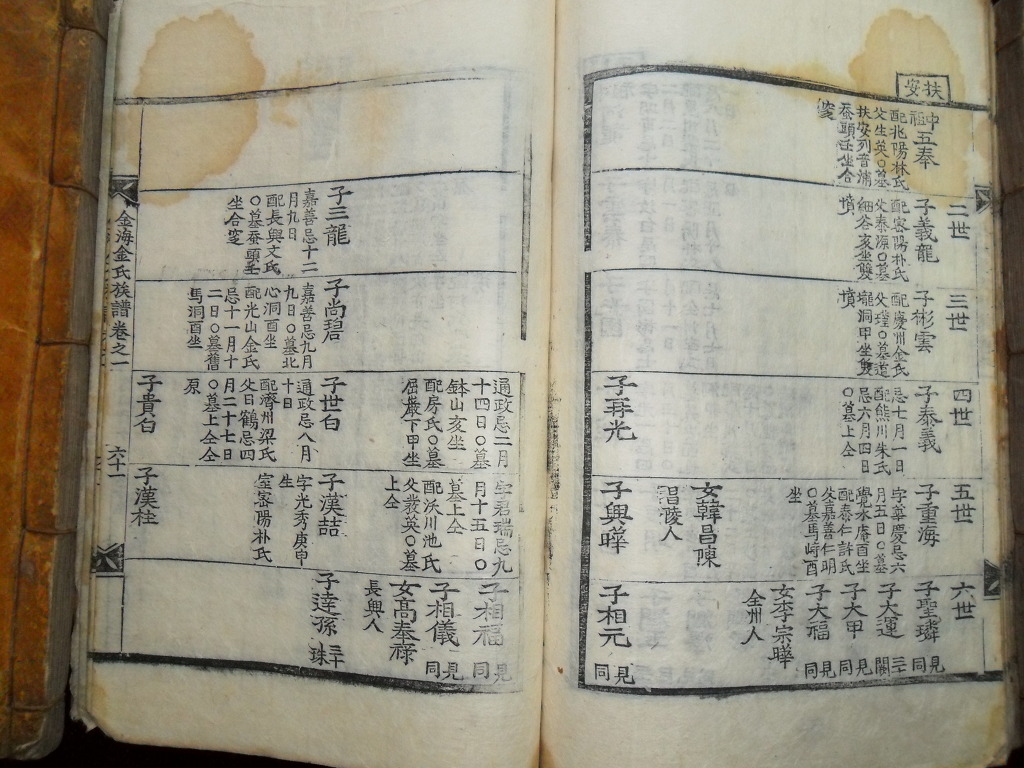 扶安
中祖五奉
配北陽林氏
父生英〇墓
扶安列音浦
蚕頭壬坐合
窆
二世
子義龍
配密陽朴氏
父泰源〇墓
細谷亥坐雙
墳
三世
子彬雲
配慶州金氏
洞甲坐雙
墳
四世
子泰義
忌七月一日
配熊川朱氏
忌六月四日
〇墓上仝
子再光
五世
子重海
字華慶忌六
月五日〇墓
覺水庵酉坐
配泰仁許氏
父嘉善仁明
〇墓馬峙酉
坐
女韓昌陳
昌陵人
子興曄
六世
子聖璘 見同
子大運 三十 關
子大甲 見同
子大福 見同
女李宗曄
全州人
子相元 見同
通政忌二月
十四日〇墓
鉢山亥坐
配房氏〇墓
屈嚴下甲坐
字君瑞忌九
月十五日〇
墓上仝
配沃川池氏
父教英〇墓
上仝
子相福 見同
子相儀 見同
女高奉祿
長興人
子三龍
嘉善忌十二
月九日
配長興文氏
〇墓蚕頭壬
坐合窆
子尚碧
嘉善忌九月
九日〇墓北
心洞酉坐
配光山金氏
忌十一月十
二日〇墓舊
馬洞酉坐
子世白
通政忌八月
十日
配濟州梁氏
父日鶴忌四
月二十七日
〇墓上仝仝
原
子漢喆
字光秀庚申
生
室密陽朴氏
子達孫 三十 珠
子貴白
子漢桂
金海金氏族譜卷之一
六十一